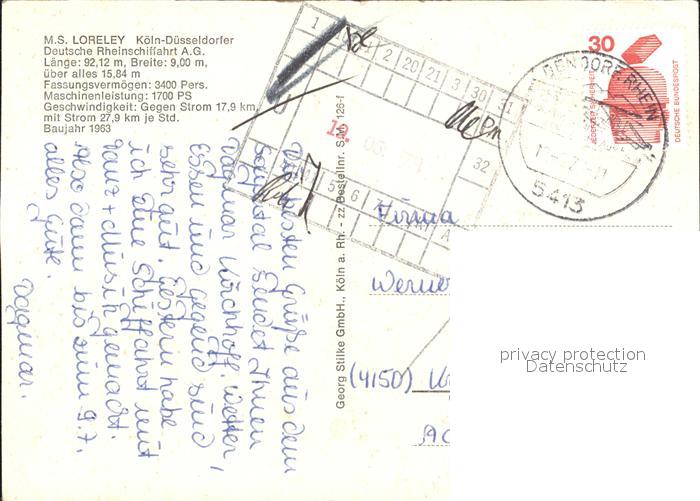 M.S. LORELEY Köln-Düsseldorfer
Deutsche Rheinschiffahrt A.G.
Länge: 92,12 m, Breite: 9,00 m,
über alles 15,84 m
Fassungsvermögen: 3400 Pers.
Maschinenleistung: 1700 PS
Geschwindigkeit: Gegen Strom 17,9 km,
mit Strom 27,9 km je Std.
Baujahr 1963
Die besten Grüße aus dem
sendet Ihnen
Dagmar Kirchhoff. Wetter,
Essen und Gegend sind
sehr gut. Gestern habe
ich eine Schiffahrt mit
Tanz + Musik gemacht.
Also dann bis zum 9.7.
alles Gute.
Dagmar.
Georg Stilke GmbH., Köln a. Rh. - zz Bestellnr. S/M 126-f
1 2 20 21 3 30 31
32
4 5 6
A
30
DEUTSCHE BUNDESPOST
BENDORF RHEIN
5413
Firma
Werne
(4150)
privacy protection
Datenschutz